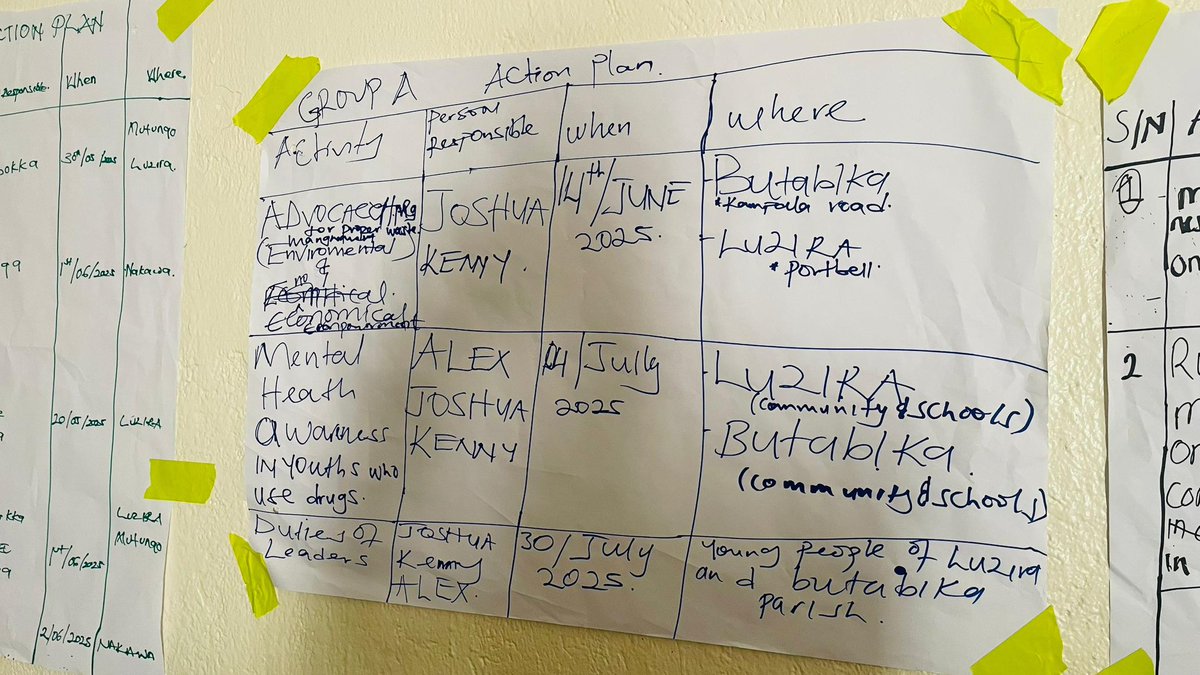 CTION PLAN
Responsible. When Where.
Mutungo
okka 30th/05/2025 Luzira.
99 1st/06/2025 Nakawa.
20/05/2025 LUZIRA
LUZIRA
Mutungo
1st/06/2025
2/06/2025 NAKAWA
GROUP A Action Plan.
Activity
person
Responsible
when
where
for proper waste
mangnament
(Enviromental)
&
Economical
Empowerment
JOSHUA
KENNY.
14th/JUNE
2025.
- Butabika
* Kampala road.
- LUZIRA
* portbell.
Mental
Heath
awarness
IN youths who
use drugs.
ALEX
JOSHUA
KENNY
14/July
2025
- LUZIRA
(community & schools)
- Butabika.
(community & schools)
Duties of
Leaders
JOSHUA
Kenny
ALEX.
30/July
2025.
young people of Luzira
and butabika
parish.
S/N
1
on
2
m
or
in